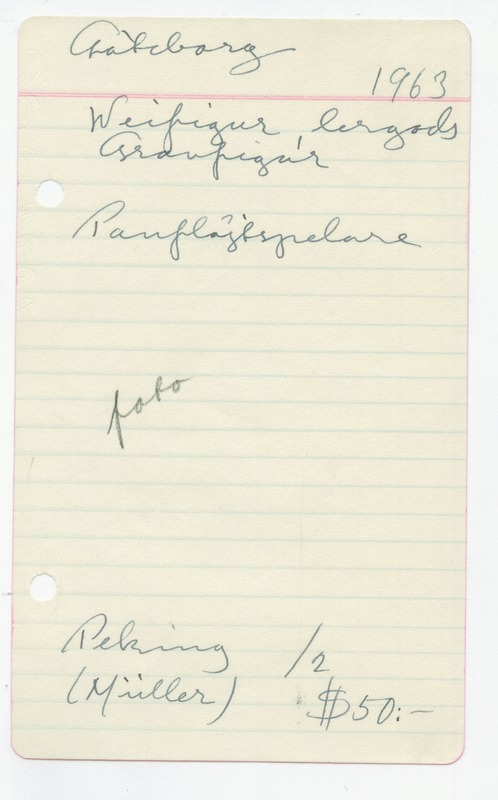 Göteborg
1963
Weifigur, lergods
Gravfigur
Panflöjtspelare
foto
Peking /2
(Müller) $50:-